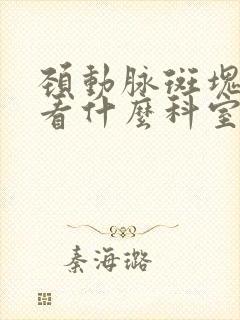 頚動脉斑塊
看什麽科室
秦海璐